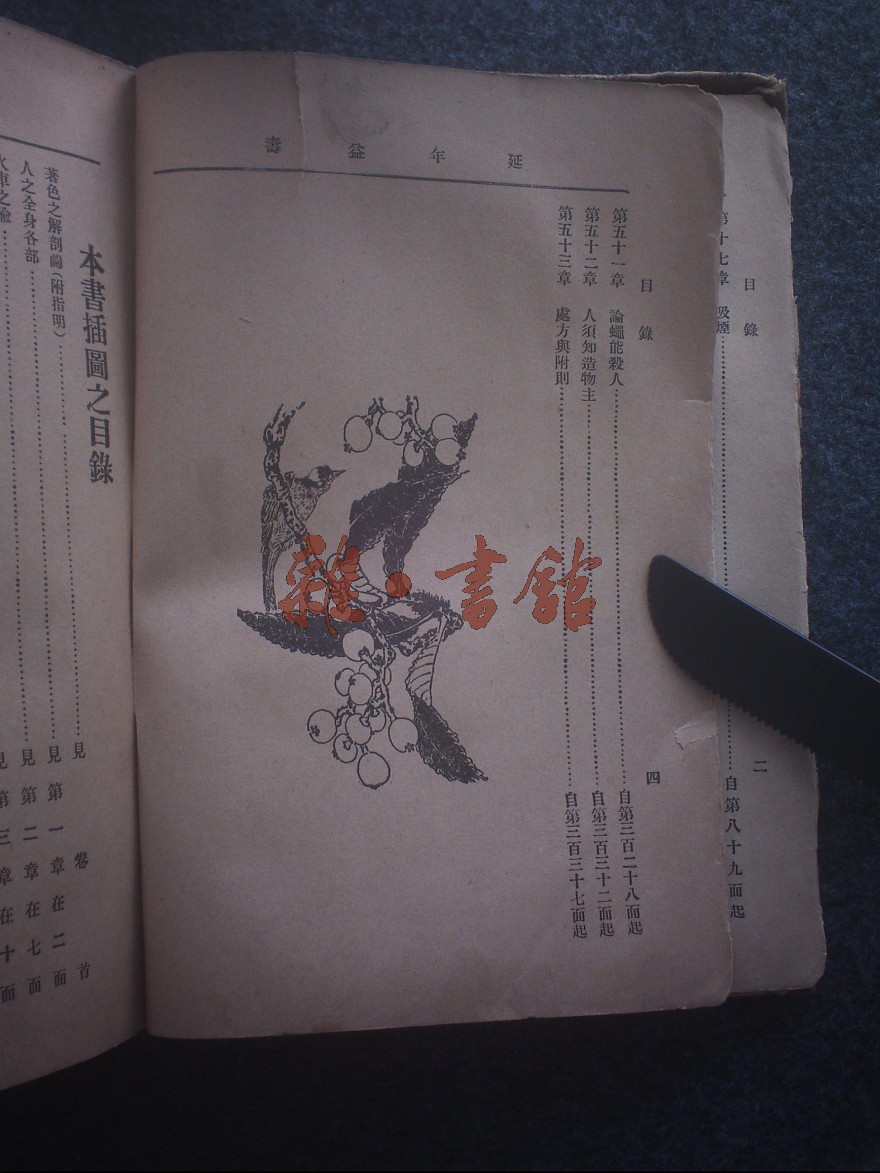 延年益壽
目錄 二
第十七章 吸煙……自第八十九面起
目錄 四
第五十一章 論蠅能殺人……自第三百二十八面起
第五十二章 人須知造物主……自第三百三十二面起
第五十三章 處方與附則……自第三百三十七面起
本書插圖之目錄
著色之解剖圖(附指明)……見卷首
人之全身各部……見第一章在二面
火車之險……見第二章在七面
見第三章在十面
雜·書館